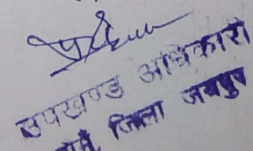 उपखण्ड अधिकारी
जिला जयपुर